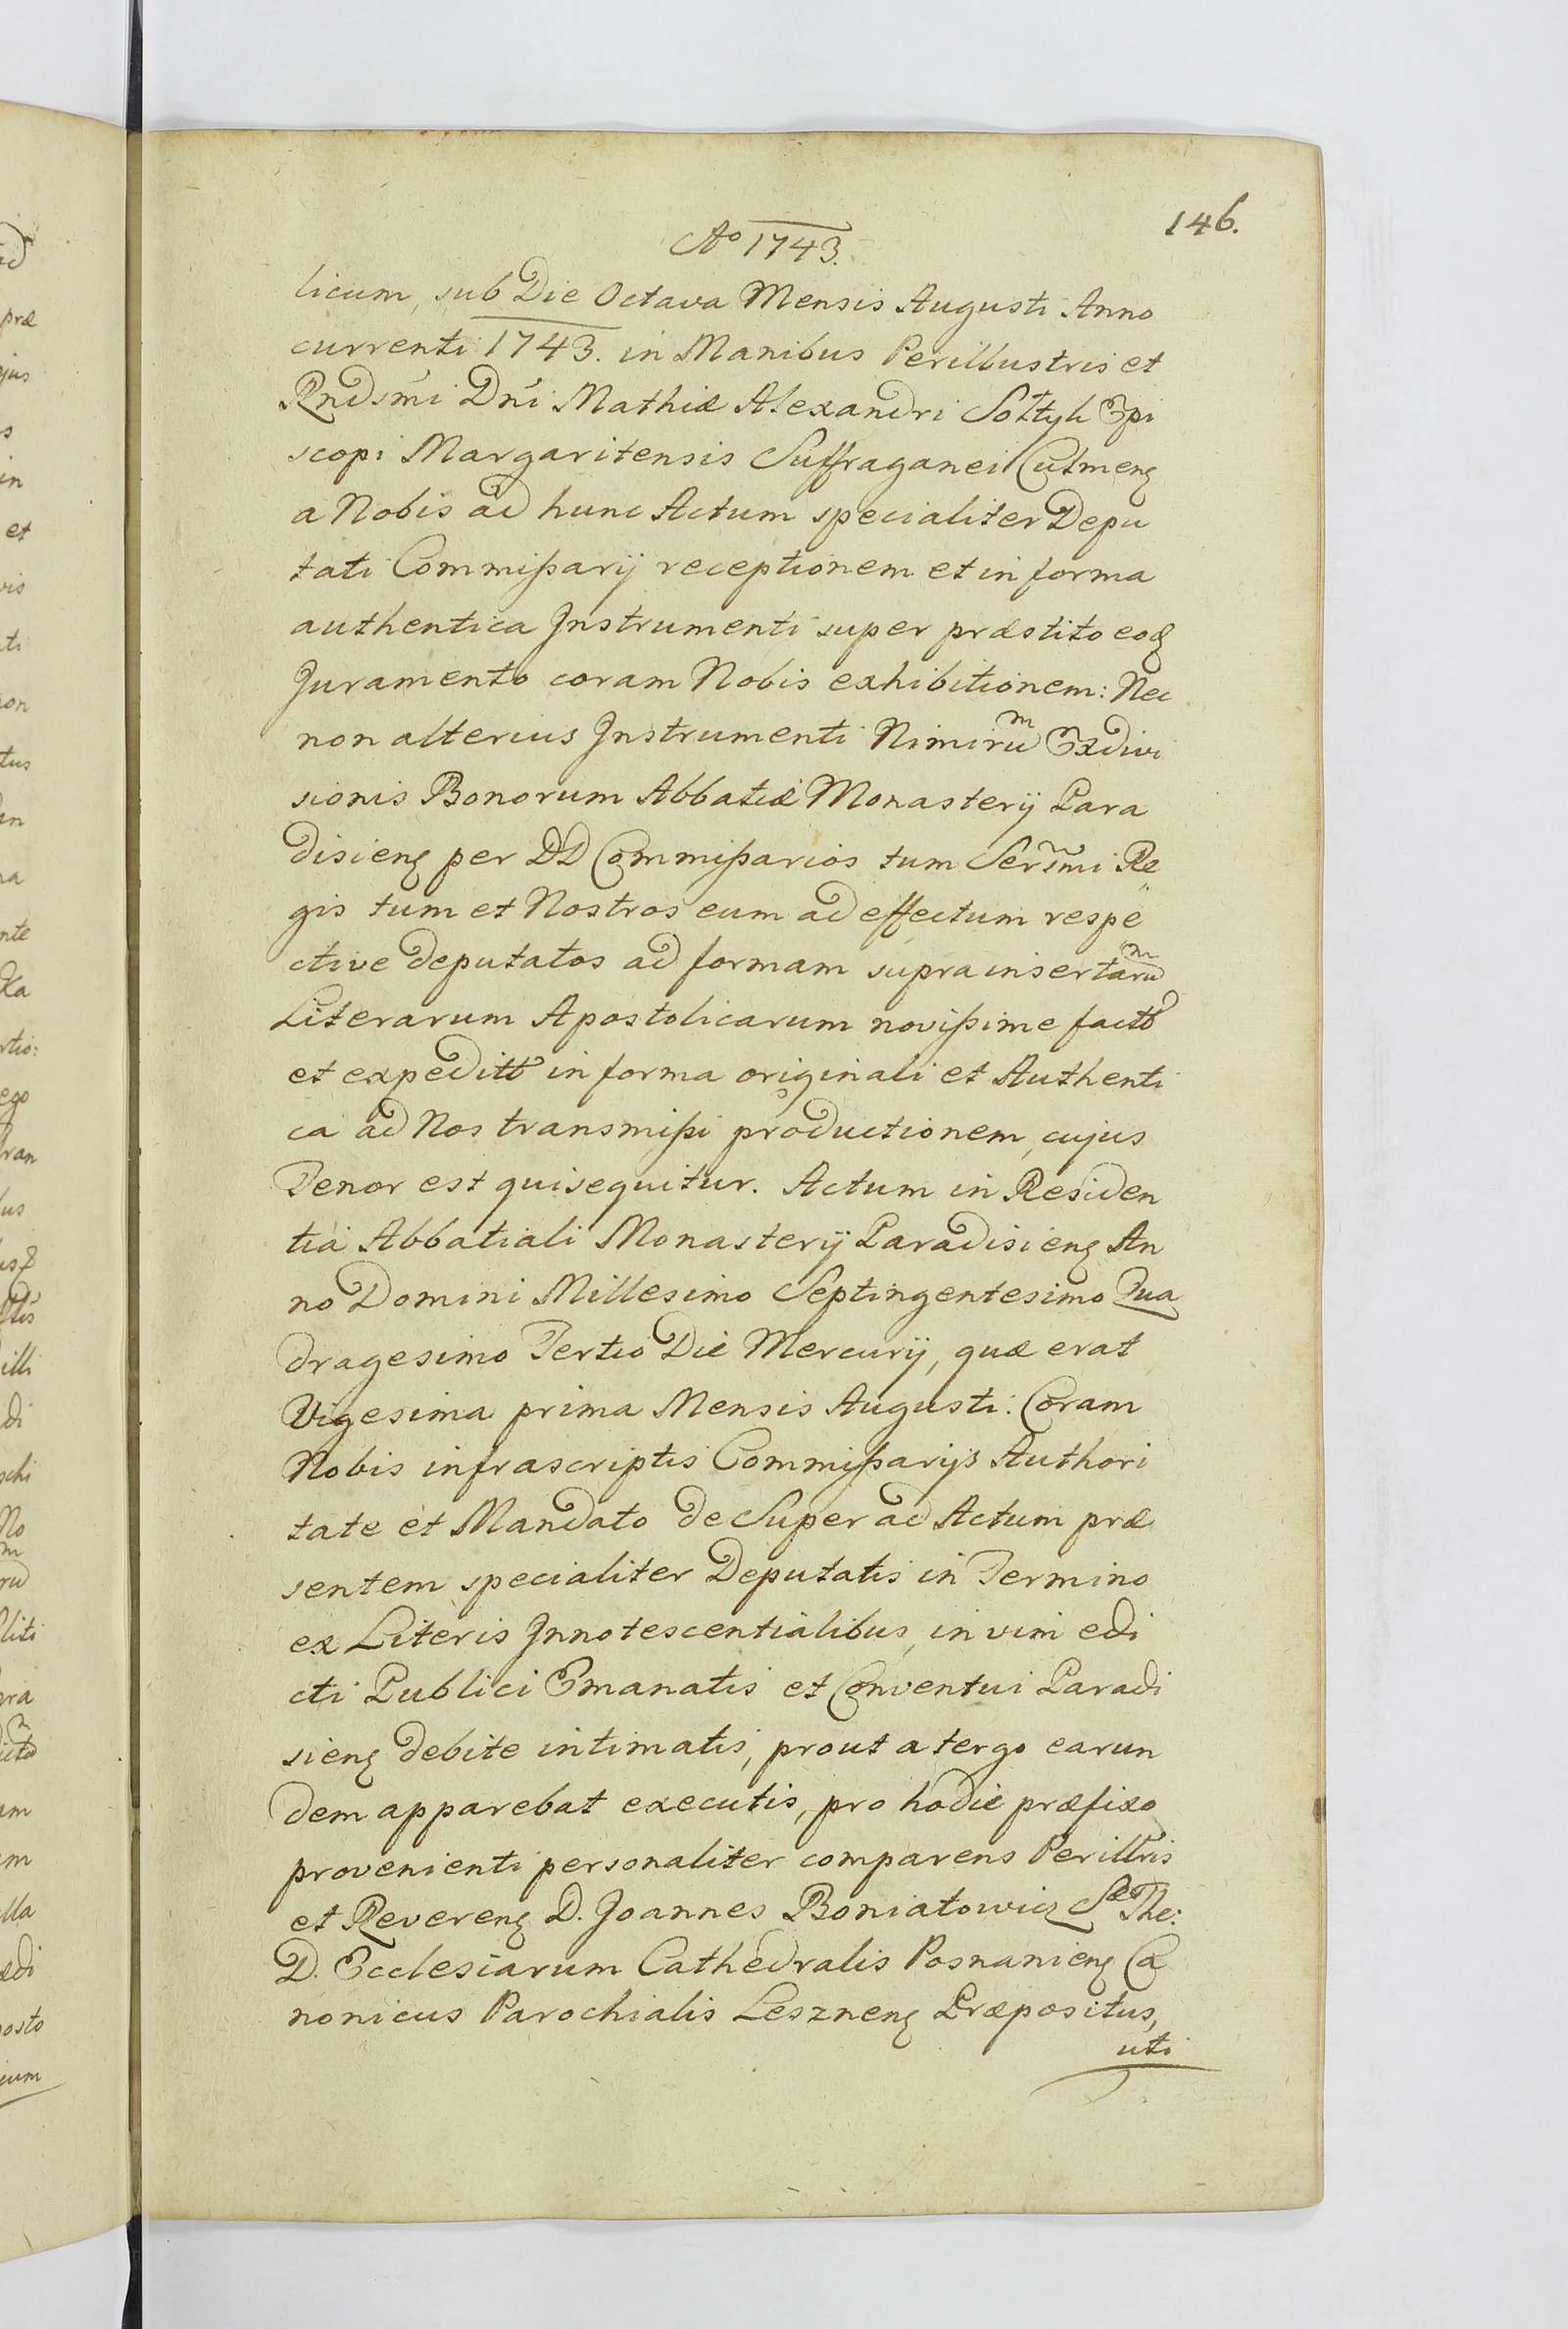 146.
Ao 1743.
licum, sub Die Octava Mensis Augusti Anno
currenti 1743. in Manibus Perillustris et
Rndsmi Dni Mathiæ Alexandri Sołtyk Epi
scopi Margaritensis Suffraganei Culmenȩ
a Nobis ad hunc Actum specialiter Depu
tati Commißarij receptionem et in forma
authentica Jnstrumenti super præstito eoȩ
Juramento coram Nobis exhibitionem: Nec
non alterius Jnstrumenti Nimirũ Exdivi
sionis Bonorum Abbatiæ Monasterij Para
disienȩ per DD Commißarios tum Sermi Re
gis tum et Nostros eum ad effectum respe
ctive deputatos ad formam supra insertarũ
Literarum Apostolicarum novißime fact
et expedit in forma originali et Authenti
ca ad Nos transmißi productionem, cujus
Tenor est qui sequitur. Actum in Residen
tia Abbatiali Monasterij Paradisienȩ An
no Domini Millesimo Septingentesimo Qua
dragesimo Tertio Die Mercurij, quæ erat
Vigesima prima Mensis Augusti: Coram
Nobis infrascriptis Commißarijs Authori
tate et Mandato de Super ad Actum præ
sentem specialiter Deputatis in Termino
ex Literis Jnnotescentialibus, in vim edi
cti Publici Emanatis et Conventui Paradi
sienȩ debite intimatis, prout a tergo earun
dem apparebat executis, pro hodie præfixo
provenienti personaliter comparens Perillris
et Reverenȩ D. Joannes Boniatowicz Sæ The:
D. Ecclesiarum Cathedralis Posnanienȩ Ca
nonicus Parochialis Lesznenȩ Præpositus,
uti